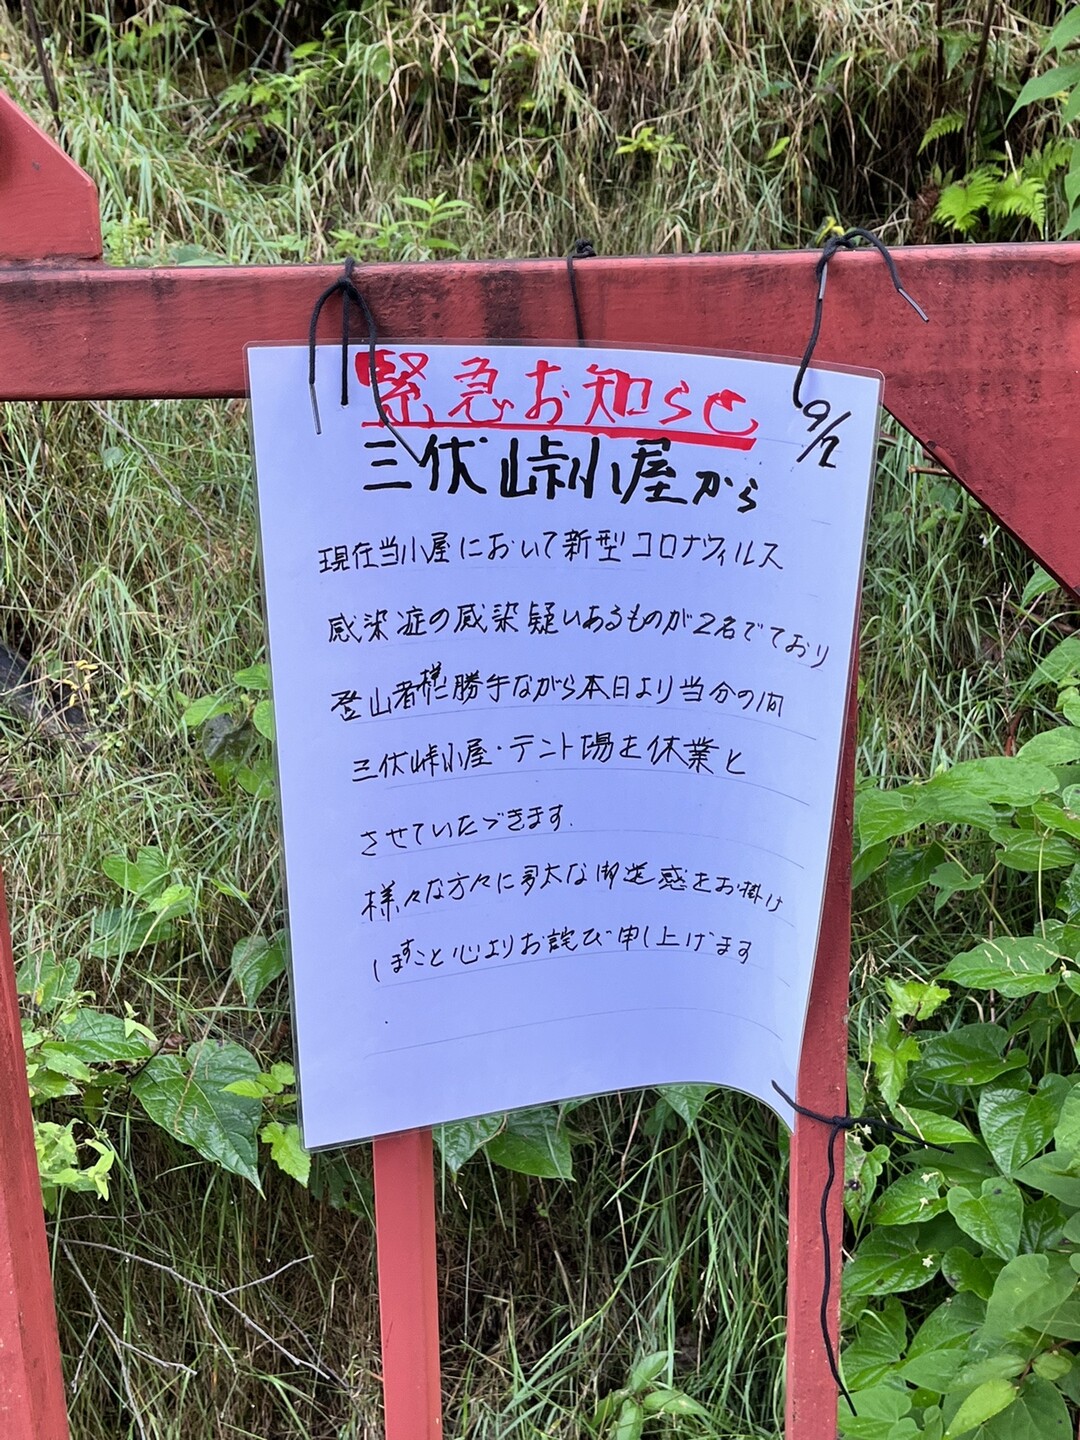 緊急お知らせ
9/2
三伏峠小屋から
現在当小屋において新型コロナウィルス
感染症の感染疑いあるものが2名でており
登山者様に勝手ながら本日より当分の間
三伏峠小屋・テント場を休業と
させていただきます.
様々な方々に多大な御迷惑をお掛け
しますこと心よりお詫び申し上げます